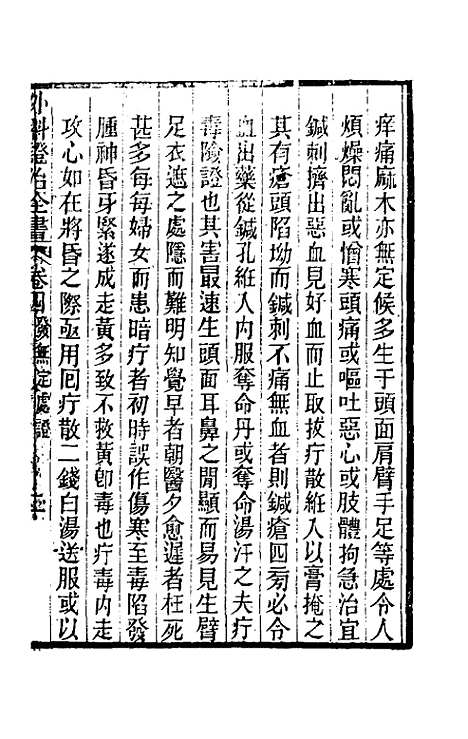 痒痛麻木亦無定候多生于頭面肩臂手足等處令人
煩燥悶亂或憎寒頭痛或嘔吐惡心或肢體拘急治宜
鍼刺擠出惡血見好血而止取拔疔散絍入以膏掩之
其有瘡頭陷坳而鍼刺不痛無血者則鍼瘡四旁必令
血出藥從鍼孔絍入內服奪命丹或奪命湯汗之夫疔
毒險證也其害最速生頭面耳鼻之閒顯而易見生臂
足衣遮之處隱而難明知覺早者朝醫夕愈遲者枉死
甚多每每婦女而患暗疔者初時誤作傷寒至毒陷發
腫神昏牙緊遂成走黃多致不救黃卽毒也疔毒內走
攻心如在將昏之際亟用回疔散二錢白湯送服或以
外科證治全書 卷四發無定處證